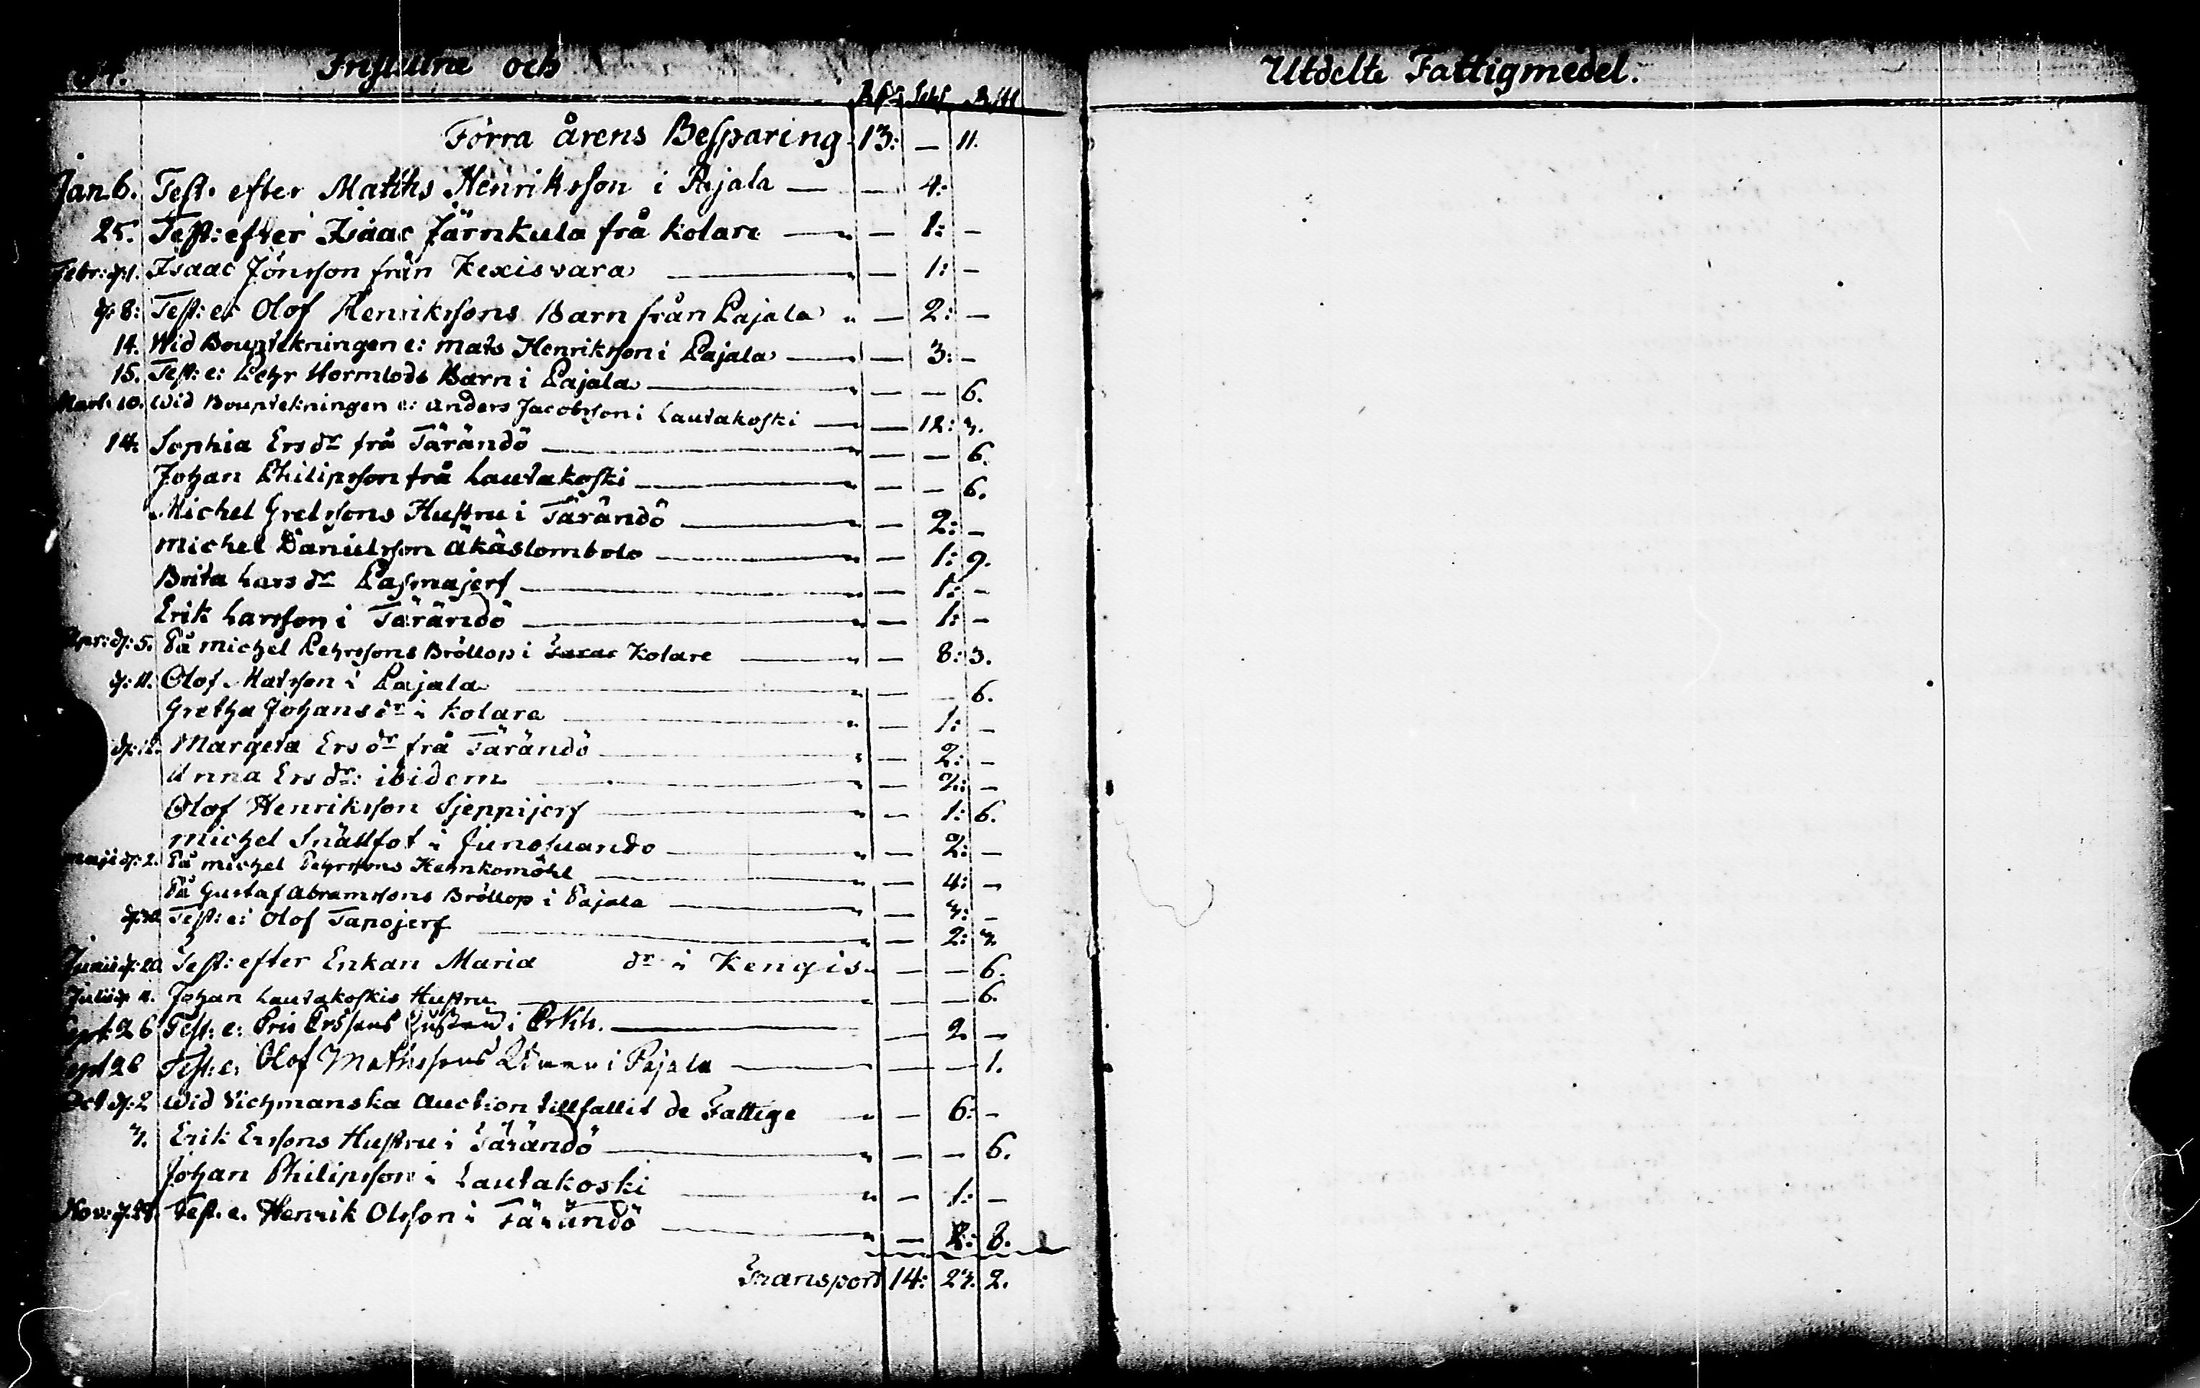 och
Utdelte Fattigmedel.
Förra årens Besparing 13: — 11.
Jan. 6. Test. efter Matths Henriksson i Pajala — — 4:
25. Test: efter Isaac Järnkula frå Kolare — — 1: —
Febr: d: 1. Isaac Jönsson från Kexisvara — — 1: —
d: 8: Test: ef Olof Henrikssons Barn från Pajala — 2: —
14. Wid Bouptekningen e: Mats Henriksson i Pajala — — 3: —
15. Test: e: Pehr Hormlods Barn i Pajala — — — 6.
Mart: 10. Wid Bouptekningen e: Anders Jacobsson i Lautakoski — — 12: 3.
14. Sophia Ersdr frå Tärändö — — — 6.
Johan Philipsson frå Lautakoski — — — 6.
Michel Grelssons Hustru i Tärändö — — 2: —
Michel Danielsson Äkäslombolo — — 1: 9.
Brita Larsdr Pasmajerf — — 1: —
Erik Larsson i Tärändö — — 1: —
Apr: d: 5. På Michel Pehrssons Bröllop i Kolare — — 8: 3.
d: 11. Olof Matsson i Pajala — — — 6.
Gretha Johansdr i Kolare — — 1: —
d: 12. Margeta Ersdr frå Tärändö — — 2: —
Anna Ersdr: ibidem — — 2: —
Olof Henriksson Sjeppijerf — — 1: 6.
Michel Snällfot i Junosuando — — 2: —
Maji d: 2. På Michel Pehrssons — — 4: —
På Gustaf Abramssons Bröllop i Pajala — — 3: —
Test: e: Olof Tanojerf — — 2: 3.
Junii d: 20. Test: efter Enkan Maria dr i Kengis — — — 6.
Julii d: 11. Johan Lautakoskis Hustru — — — 6.
Sept. 26 Test: e: Ersssons Hustru i — 2 —
Sept 26 Test: e: Olof Mathssons i Pajala — — — 1.
Oct d: 2 Wid Vichmanska Auction tillfallit de Fattige — — 6: —
3. Erik Erssons Hustru i Tärändö — — — 6.
Johan Philipsson i Lautakoski — — 1: —
Nov: d: Test. e. Henrik Olsson i Tärändö — — 8.
Transport 14: 23. 2.